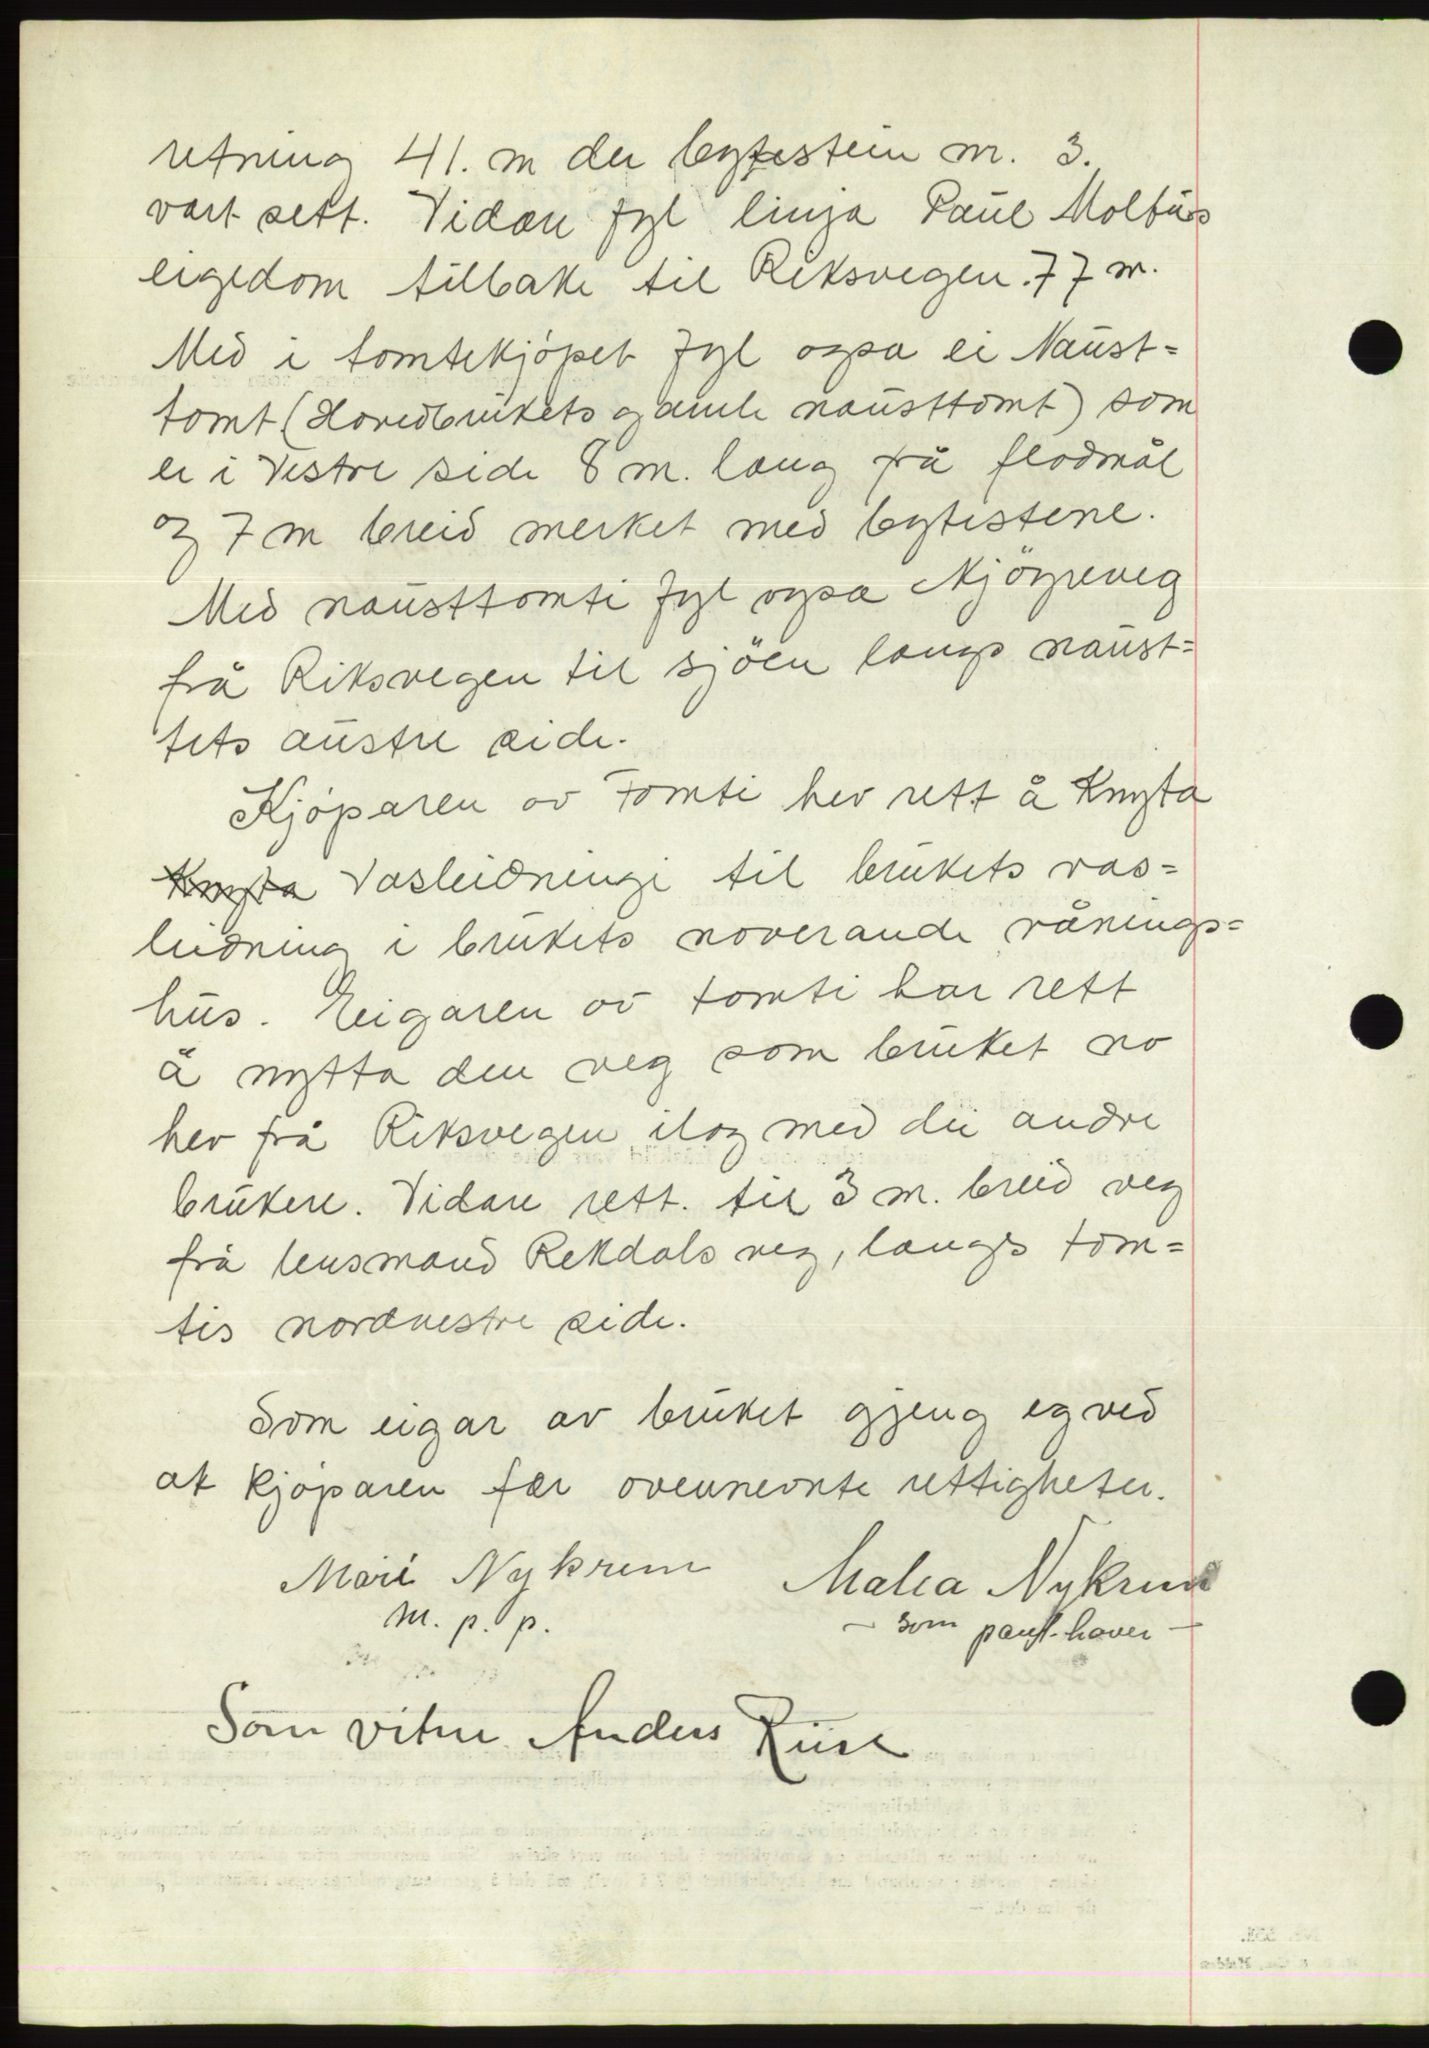 retning 41. m der bytestein nr. 3.
vart sett. Vidare fyl linja Paul Moltus
eigedom tilbake til Riksvegen. 77 m.
Med i tomtekjöpet fyl ogsa ei Naust=
tomt (Hovedbrukets gamle nausttomt) som
er i Vestre side 8 m. lang frå flodmål
og 7 m breid merket med bytestene.
Med nausttomti fyl ogsa Kjöyreveg
frå Riksvegen til sjöen langs naust=
tets austre side.
Kjöparen av Tomti hev rett å Knyta
Knyta Vasleidningi til brukets vas=
leidning i brukets noverande vånings=
hus. Eigaren av tomti har rett
å nytta den veg som bruket no
hev frå Riksvegen ilag med dei andre
brukere. Vidare rett. til 3 m. breid veg
frå lensmand Rekdals veg, langs tom=
tis nordvestre side.
Som eigar av bruket gjeng eg ved
at kjöparen fær ovennevnte rettigheter.
Mari Nykrem Malea Nykrem
m. p. p. – som pant-haver –
Som vitne Anders Riise